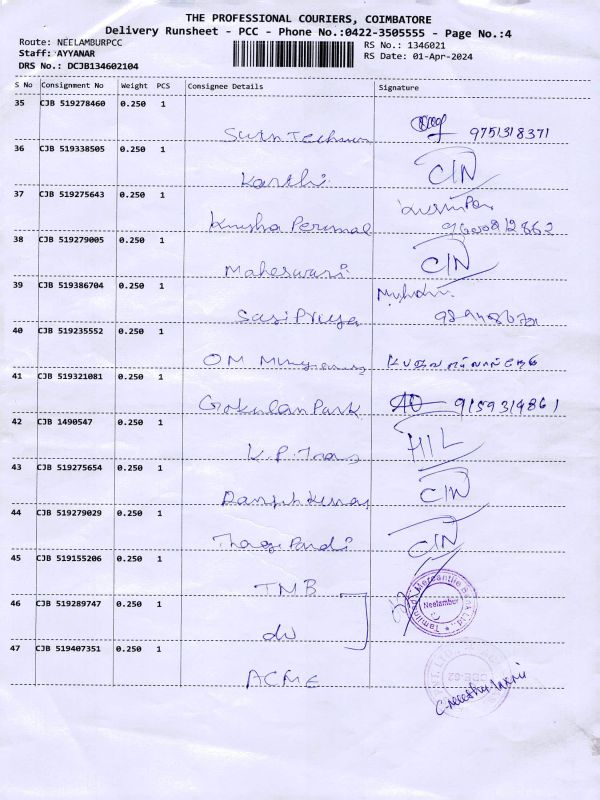 THE PROFESSIONAL COURIERS, COIMBATORE
Delivery Runsheet - PCC - Phone No.:0422-3505555 - Page No.:4
Route: NEELAMBURPCC
RS No.: 1346021
Staff: AYYANAR
RS Date: 01-Apr-2024
DRS No.: DCJB134602104
S No Consignment No Weight PCS Consignee Details Signature
35 CJB 519278460 0.250 1
9751318371
36 CJB 519338505 0.250 1
Karthi CIN
37 CJB 519275643 0.250 1
Perumal
38 CJB 519279005 0.250 1
Maheswari CIN
39 CJB 519386704 0.250 1
Sasi Priya
40 CJB 519235552 0.250 1
OM
41 CJB 519321081 0.250 1
Gokulan Park 9159319861
42 CJB 1490547 0.250 1
K.P. Trans HIL
43 CJB 519275654 0.250 1
CIN
44 CJB 519279029 0.250 1
CIN
45 CJB 519155206 0.250 1
TMB
Tamilnad Mercantile Bank Ltd.
Neelambur
46 CJB 519289747 0.250 1
do
47 CJB 519407351 0.250 1
ACME